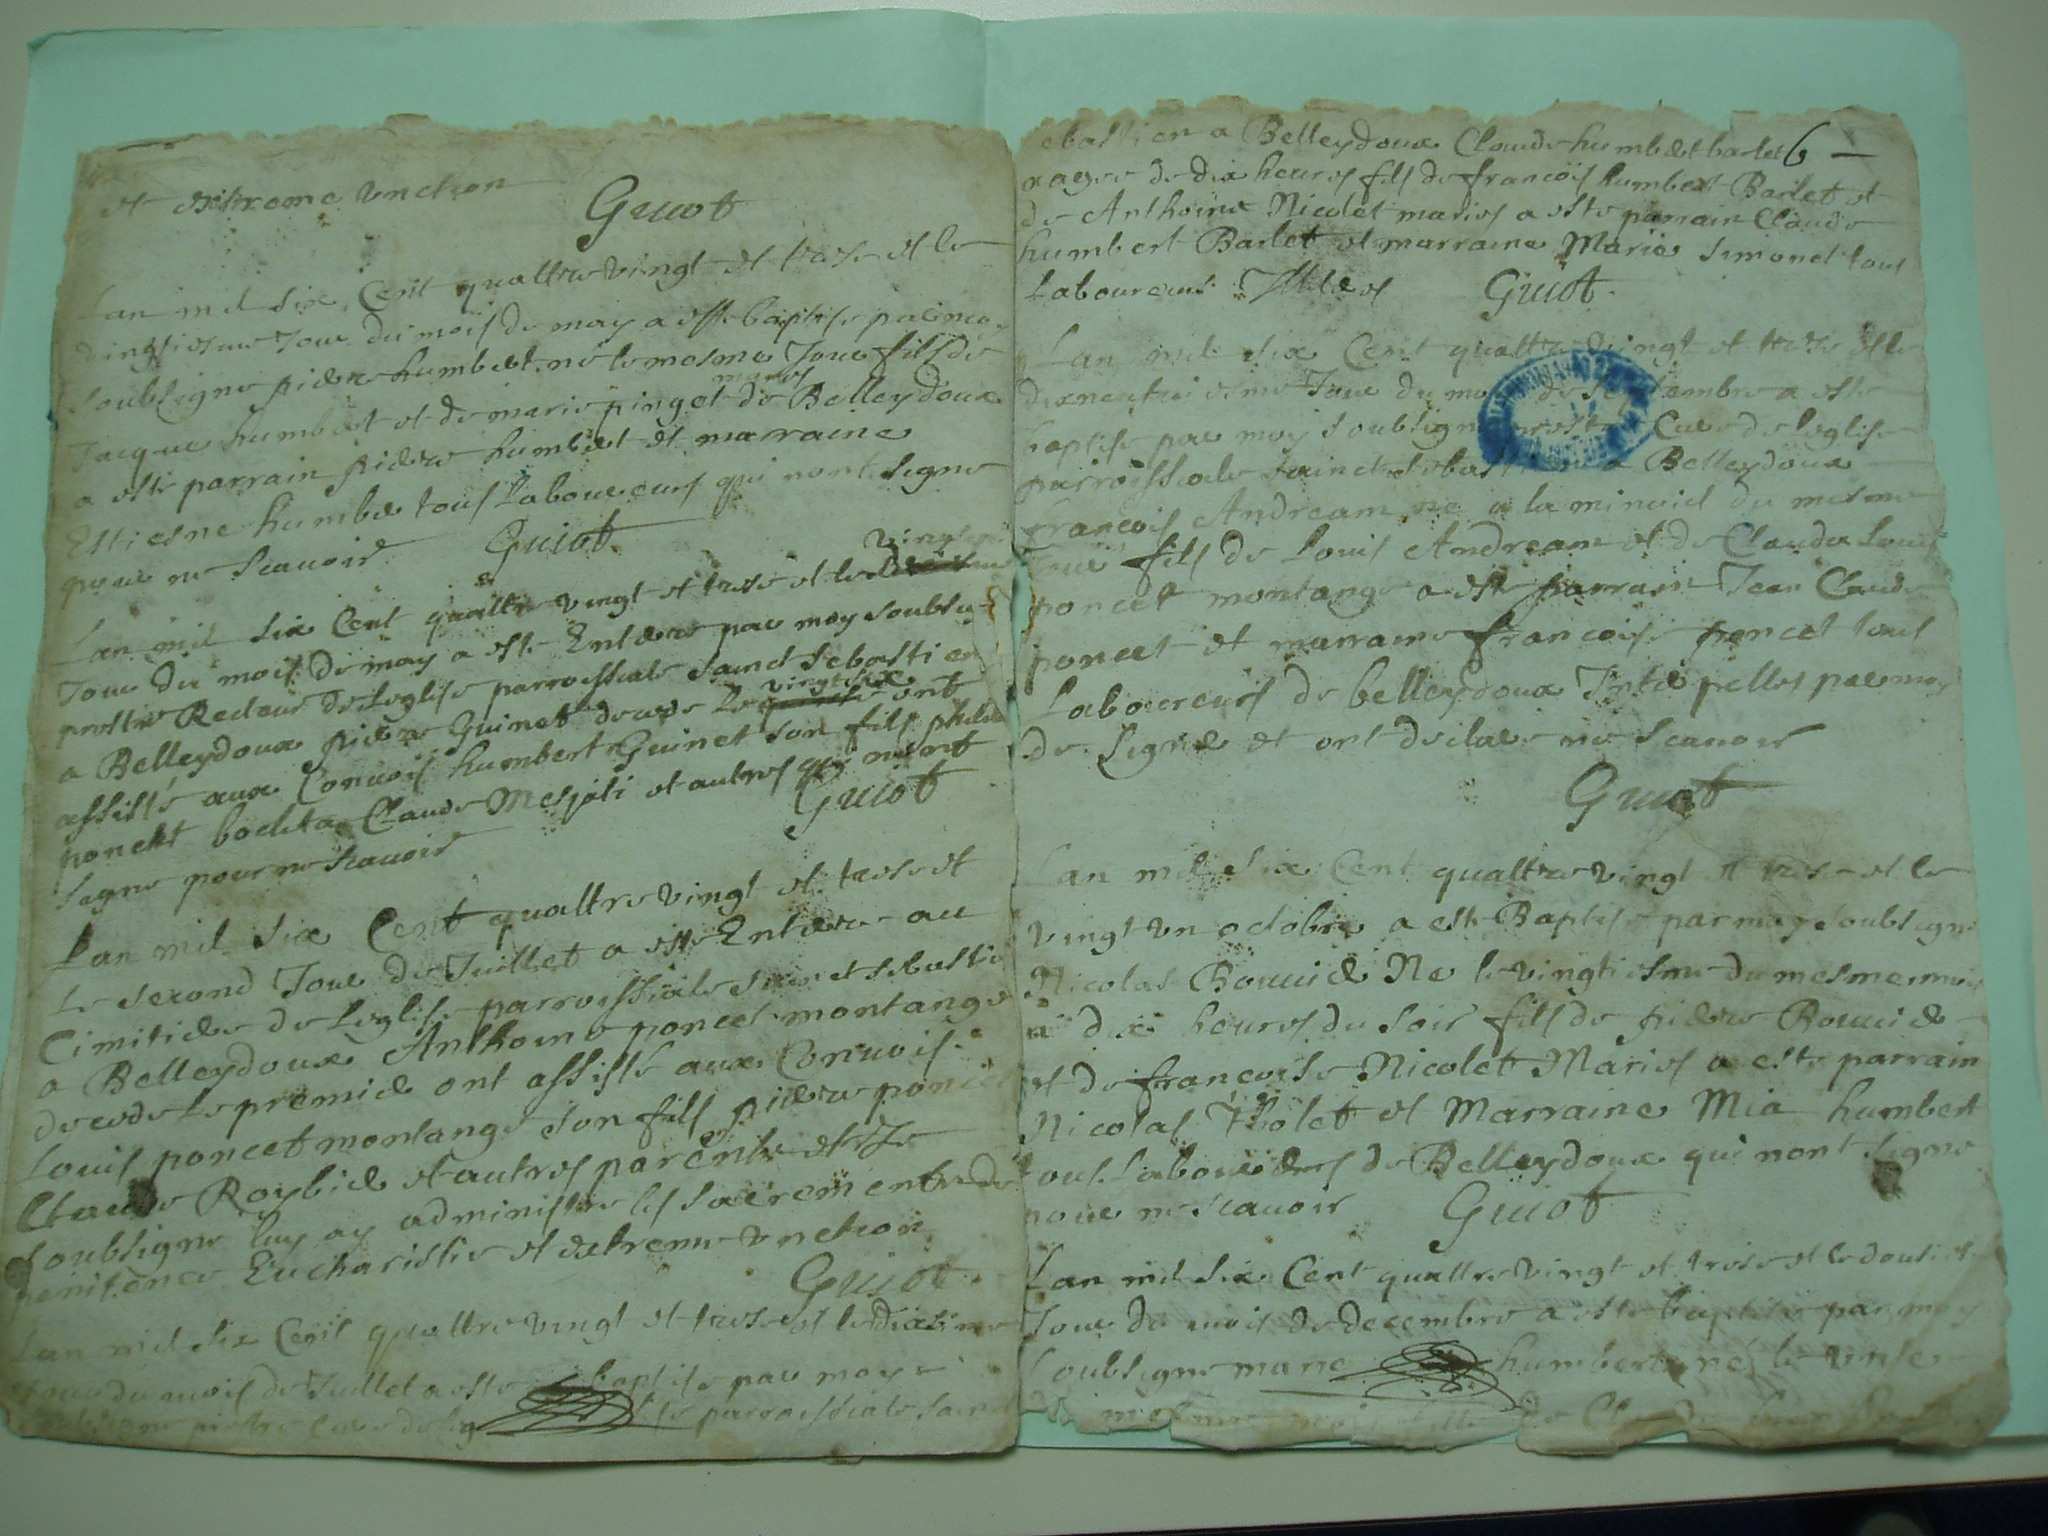 et extreme unction
Guiot
Lan mil six Cent quattre vingt et treze et le
vingtiesme Jour du mois de may a este baptise par moy
soubsigne pierre humbert ne le mesme Jour fils de
Jacque humbert et de marie pinget maries de Belleydoux
a este parrain pierre humbert et marraine
Estiesne humber tous laboureurs qui nont signe
pour ne scavoir Guiot
Lan mil six Cent quattre vingt et trese et le
Jour du mois de may a este Enterre par moy soubsi-
prestre Recteur de leglise parroissiale sainct sebastien
a Belleydoux pierre Guinet decede le vingt six ont
assisté aux Convois humbert Guinet son fils
poncet Claude et autres qui nont
signe pour ne scavoir Guiot
Lan mil six Cent quattre vingt et trese et
le second Jour de Juillet a este Enterre au
Cimitiere de leglise parroissiale sainct sebastie
a Belleydoux Anthoine poncet montange
decede le premier ont assisté aux Convois
Louis poncet montange son fils pierre poncet
Claude Roybier et autres parents et
soubsigne luy ay administre les sacrements de
penitence Eucharistie et extreme unction
Guiot
Lan mil six Cent quattre vingt et trese et le dixiesme
Jour du mois de Juillet a este baptise par moy
soubsigne prestre Cure de leglise parroissiale sainct
ebastien a Belleydoux Claude humbert barlet 6
agee de dix heures fils de francois humbert Barlet et
de Anthoine Nicolet maries a este parrain Claude
humbert Barlet et marraine Marie simonet tous
Laboureurs Guiot
Lan mil six Cent quattre vingt et treze et le
dixneufviesme Jour du mois de septembre a este
baptise par moy soubsigne prestre Cure de leglise
parroissiale sainct sebastien a Belleydoux
francois Andream ne a la minuict du mesme
Jour fils de Louis Andream et de Claude Louise
poncet montange a este parrain Jean Claude
poncet et marraine francoise poncet tous
Laboureurs de belleydoux Interpelles par moy
de signer et ont declare ne scavoir
Guiot
Lan mil six Cent quattre vingt et treze et le
vingt un octobre a este Baptise par moy soubsigne
Nicolas Bouvier Ne le vingtiesme du mesme mois
a dix heures du soir fils de pierre Bouvier
et de francoise Nicolet Maries a este parrain
Nicolas et Marraine Mia humbert
tous Laboureurs de Belleydoux qui nont signe
pour ne scavoir Guiot
Lan mil six Cent quattre vingt et trese et le dousiesme
Jour du mois de decembre a este baptise par moy
soubsigne marie humbert nee le
mesme mois fille de